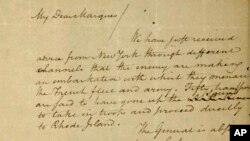 My Dear Marquis
We have just received
advice from New York through different
channels that the enemy are making
an embarkation with which they menace
the French fleet and army. Fifty transports
are said to have gone up the Sound
to take in troops and proceed directly
to Rhode Island.
The General is
AP